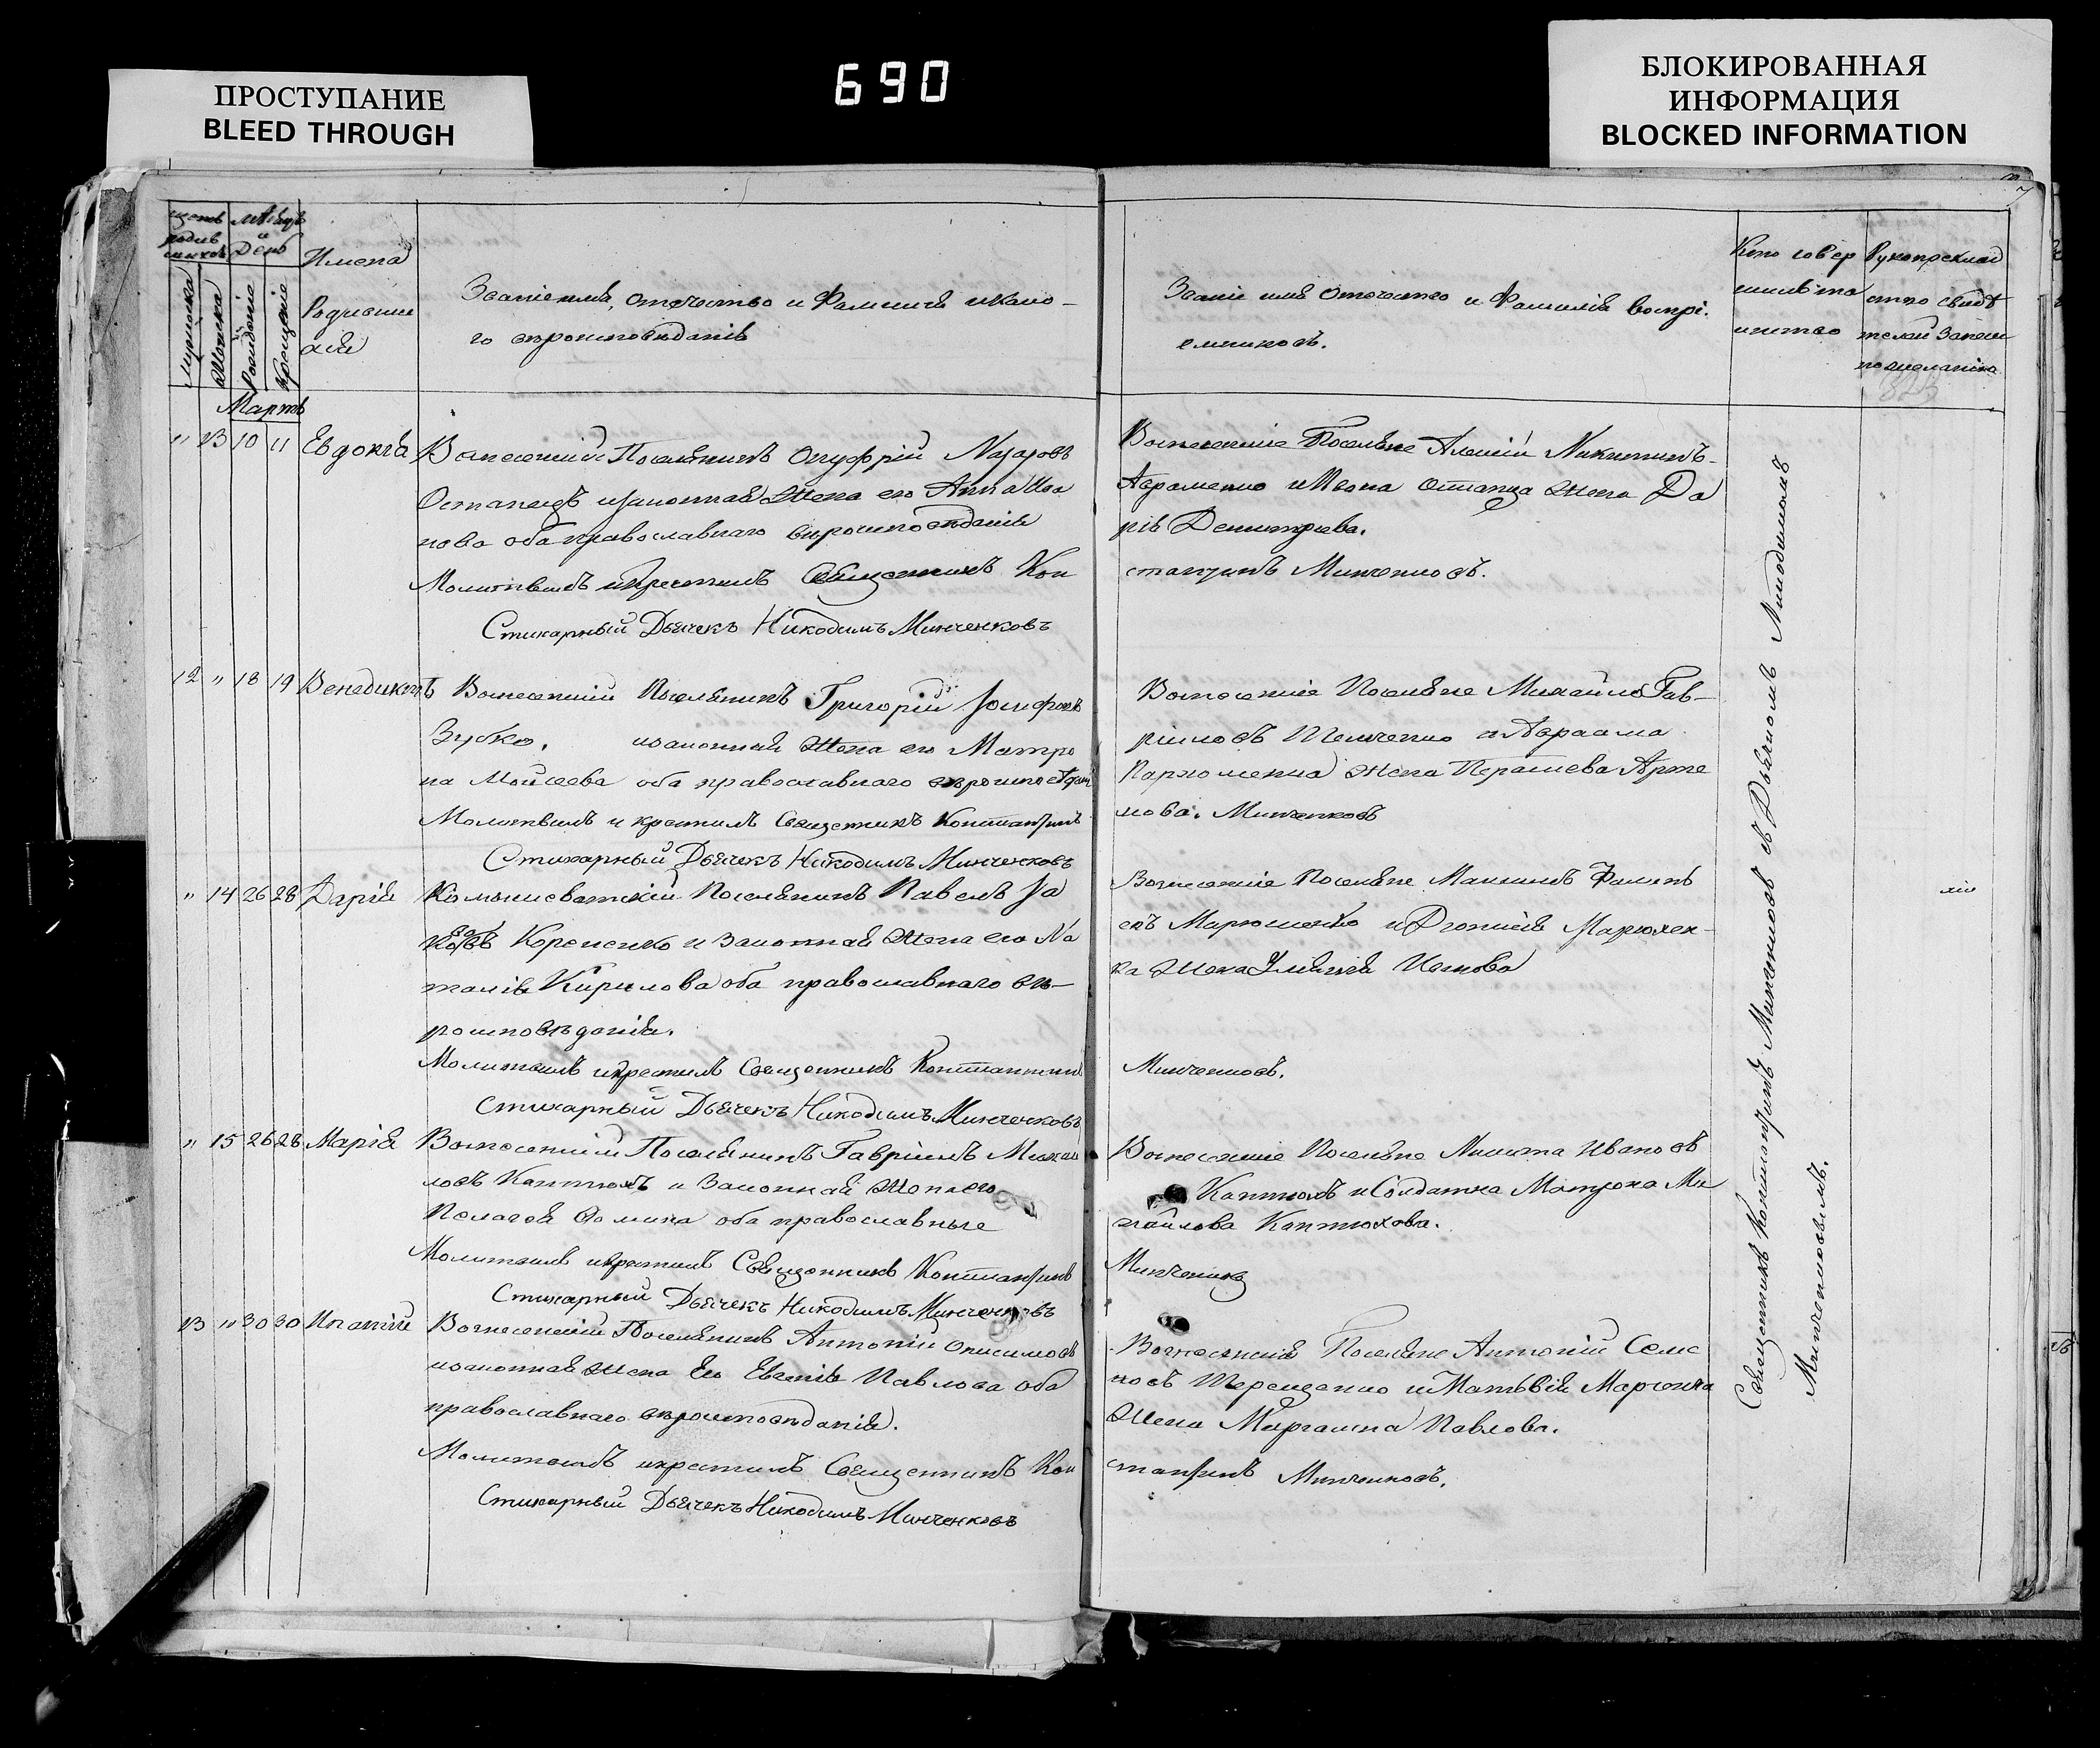 690
ПРОСТУПАНИЕ
BLEED THROUGH
БЛОКИРОВАННАЯ
ИНФОРМАЦИЯ
BLOCKED INFORMATION
7
Мѣсяцъ
и
День
Имена
Родивши
хся
Мужеска
Женска
Рожденіе
Крещеніе
Званіе имя, отечество и Фамилія и како-
го вѣроисповѣданія
Званіе имя Отечество и Фамилія воспрі-
емниковъ.
Кто совер
шилъ та
инство
Рукоприклад
ство свидѣ
телей записи
по желанію
Мартъ
" 13 10 11 Евдокіа
Вознесенскій Поселянинъ Онуфрій Назаровъ
Остапецъ и законная Жена его Анна Ива
нова оба православнаго вѣроисповѣданія
Молитвилъ и крестилъ Священникъ Кон
Стихарный Дьячекъ Никодимъ Минченковъ
Вознесенскіе Поселяне Алексій Никитинъ
Авраменко и Ивана Остапца Жена Да
рія Димитріева.
стантинъ Минченковъ.
12 " 18 19 Венедиктъ
Вознесенскій Поселянинъ Григорій Іосифовъ
Зубко, и законная Жена его Матро
на Моисеева оба православнаго вѣроисповѣдані
Молитвилъ и крестилъ Священникъ Константинъ
Стихарный Дьячекъ Никодимъ Минченковъ
Вознесенскіе Поселяне Михайло Гав-
риловъ и Авраама
Пархоменка Жена Параскева Арте
мова. Минченковъ
" 14 26 28 Дарія
Камышеватскій Поселянинъ Павелъ Іа
ковъ Корененко и Законная Жена его На
талія Кирилова оба православнаго вѣ-
роисповѣданія.
Молитвилъ и крестилъ Священникъ Константинъ
Стихарный Дьячекъ Никодимъ Минченковъ
Вознесенскіе Поселяне Максимъ
евъ и Діонисія
ка Жена Уліянія
Минченковъ.
" 15 26 28 Марія
Вознесенскій Поселянинъ Гавріилъ Михай
ловъ Каптюхъ и Законная Жена его
Пелагея Фомина оба православные
Молитвилъ и крестилъ Священникъ Константинъ
Стихарный Дьячекъ Никодимъ Минченковъ
Вознесенскіе Поселяне Никита Ивановъ
Каптюхъ и Солдатка Матрона Ми
хайлова Каптюхова.
Минченковъ
13 " 30 30 Ипатій
Вознесенскій Поселянинъ Антоній Онисимовъ
и законная Жена Его Евгенія Павлова оба
православнаго вѣроисповѣданія.
Молитвилъ и крестилъ Священникъ Кон
Стихарный Дьячекъ Никодимъ Минченковъ
Вознесенскія Поселяне Антоній Семе
новъ Терещенко и Матвѣя
Жена Павлова.
стантинъ Минченковъ.
Священникъ Константинъ Минченковъ съ Дьячкомъ Никодимомъ
Минченковымъ.